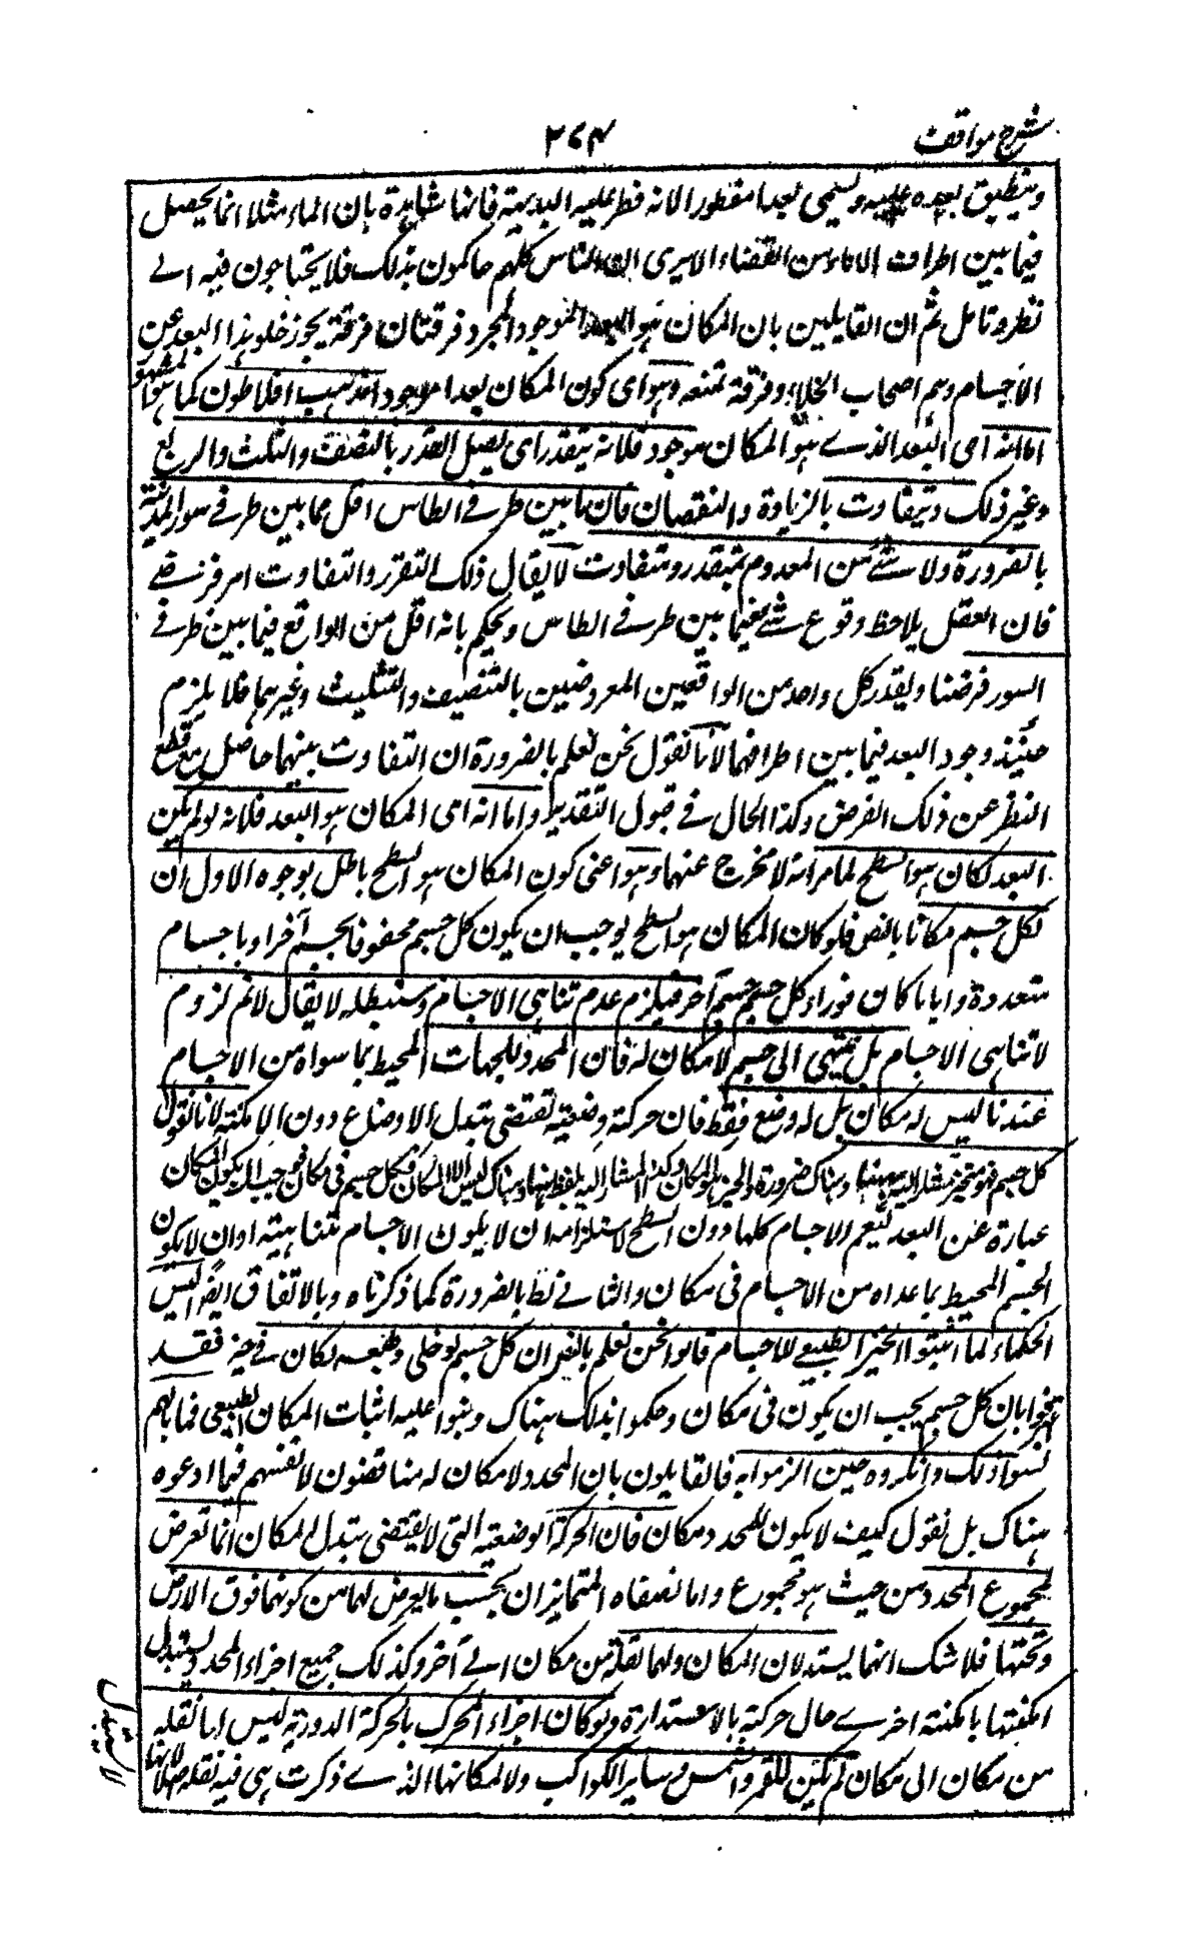 شرح مواقف
۲۶۴
وينطبق بعده عليه ويسمى بعدا مفطورا لانه فطر عليه البديهة فانها شاهدة بان الماء مثلا انما يحصل
فيما بين اطراف الاناء من الفضاء الا يرى ان الناس كلهم حاكمون بذلك فلا يحتاجون فيه الى
نظر وتامل ثم ان القايلين بان المكان هو البعد الموجود المجرد فرقتان فرقة يجوز خلو هذا البعد عن
الاجسام وهم اصحاب الخلاء وفرقة تمنعه وهو اى كون المكان بعدا موجودا مذهب افلاطون كما هو المشهور
اما انه اى البعد الذى هو المكان موجود فلانه يتقدر اى يقبل التقدر بالنصف والثلث والربع
وغير ذلك ويتفاوت بالزيادة والنقصان فان ما بين طرفى الطاس اقل مما بين طرفى سور المدينة
بالضرورة ولا شئ من المعدوم بمتقدر ومتفاوت لا يقال ذلك التقرر والتفاوت امر فرضى
فان العقل يلاحظ وقوع شئ فيما بين طرفى الطاس ويحكم بانه اقل من الواقع فيما بين طرفى
السور فرضنا ويقدر كل واحد من الواقعين المعروضين بالتنصيف والتثليث وغيرهما فلا يلزم
حينئذ وجود البعد فيما بين اطرافهما لانا نقول نحن نعلم بالضرورة ان التفاوت بينهما حاصل مع قطع
النظر عن ذلك الفرض وكذا الحال فى قبول التقدير واما انه اى المكان هو البعد فلانه لو لم يكن
البعد لكان هو السطح لما مر انه لا يخرج عنهما وهو اعنى كون المكان هو السطح باطل بوجوه الاول ان
لكل جسم مكانا بالض فلو كان المكان هو السطح لوجب ان يكون كل جسم محفوفا بجسم آخر او باجسام
متعددة وايا ما كان فوراء كل جسم جسم آخر فيلزم عدم تناهى الاجسام وسنبطله لا يقال لا نم لزوم
لا تناهى الاجسام بل ينتهى الى جسم لا مكان له فان المحدد للجهات المحيط بما سواه من الاجسام
عندنا ليس له مكان بل له وضع فقط فان حركة وضعية تقتضى تبدل الاوضاع دون الامكنة لانا نقول
كل جسم فهو متحيز مشار اليه بههنا وهناك ضرورة والحيز هو المكان وكذا المشار اليه بلفظ ههنا وهناك ليس الا المكان فكل جسم فى مكان فيجب ان يكون المكان
عبارة عن البعد ليعم الاجسام كلها دون السطح لاستلزامه ان لا يكون الاجسام متناهية او ان لا يكون
الجسم المحيط بما عداه من الاجسام فى مكان والثانى بط بالضرورة كما ذكرناه وبالاتفاق ايضا اليس
الحكماء لما اثبتوا الحيز الطبيعى للاجسام قالوا نحن نعلم بالضر ان كل جسم لو خلى وطبعه لكان فى حيز فقد
اعترفوا بان كل جسم يجب ان يكون فى مكان وحكموا بذلك هناك وبنوا عليه اثبات المكان الطبيعى فما بالهم
نسوا ذلك وانكروه حين الزموا به فالقايلون بان المحدد لا مكان له مناقضون لانفسهم فيما ادعوه
هناك بل نقول كيف لا يكون للمحدد مكان فان الحركة الوضعية التى لا يقتضى تبدل المكان انما تعرض
لمجموع المحدد من حيث هو مجموع واما نصفاه المتمايزان بحسب ما يعرض لهما من كونهما فوق الارض
وتحتها فلا شك انهما يستبدلان المكان ولهما نقلة من مكان الى آخر وكذلك جميع اجزاء المحدد يستبدل
امكنتها بامكنة اخرى حال حركته بالاستدارة ولو كان اجزاء المتحرك بالحركة الدورية ليس لها نقلة
من مكان الى مكان لم يكن للقمر والشمس وساير الكواكب ولا لمكانها الذى ذكرت هى فيه نقلة اصلا لانها
لا يستبدل